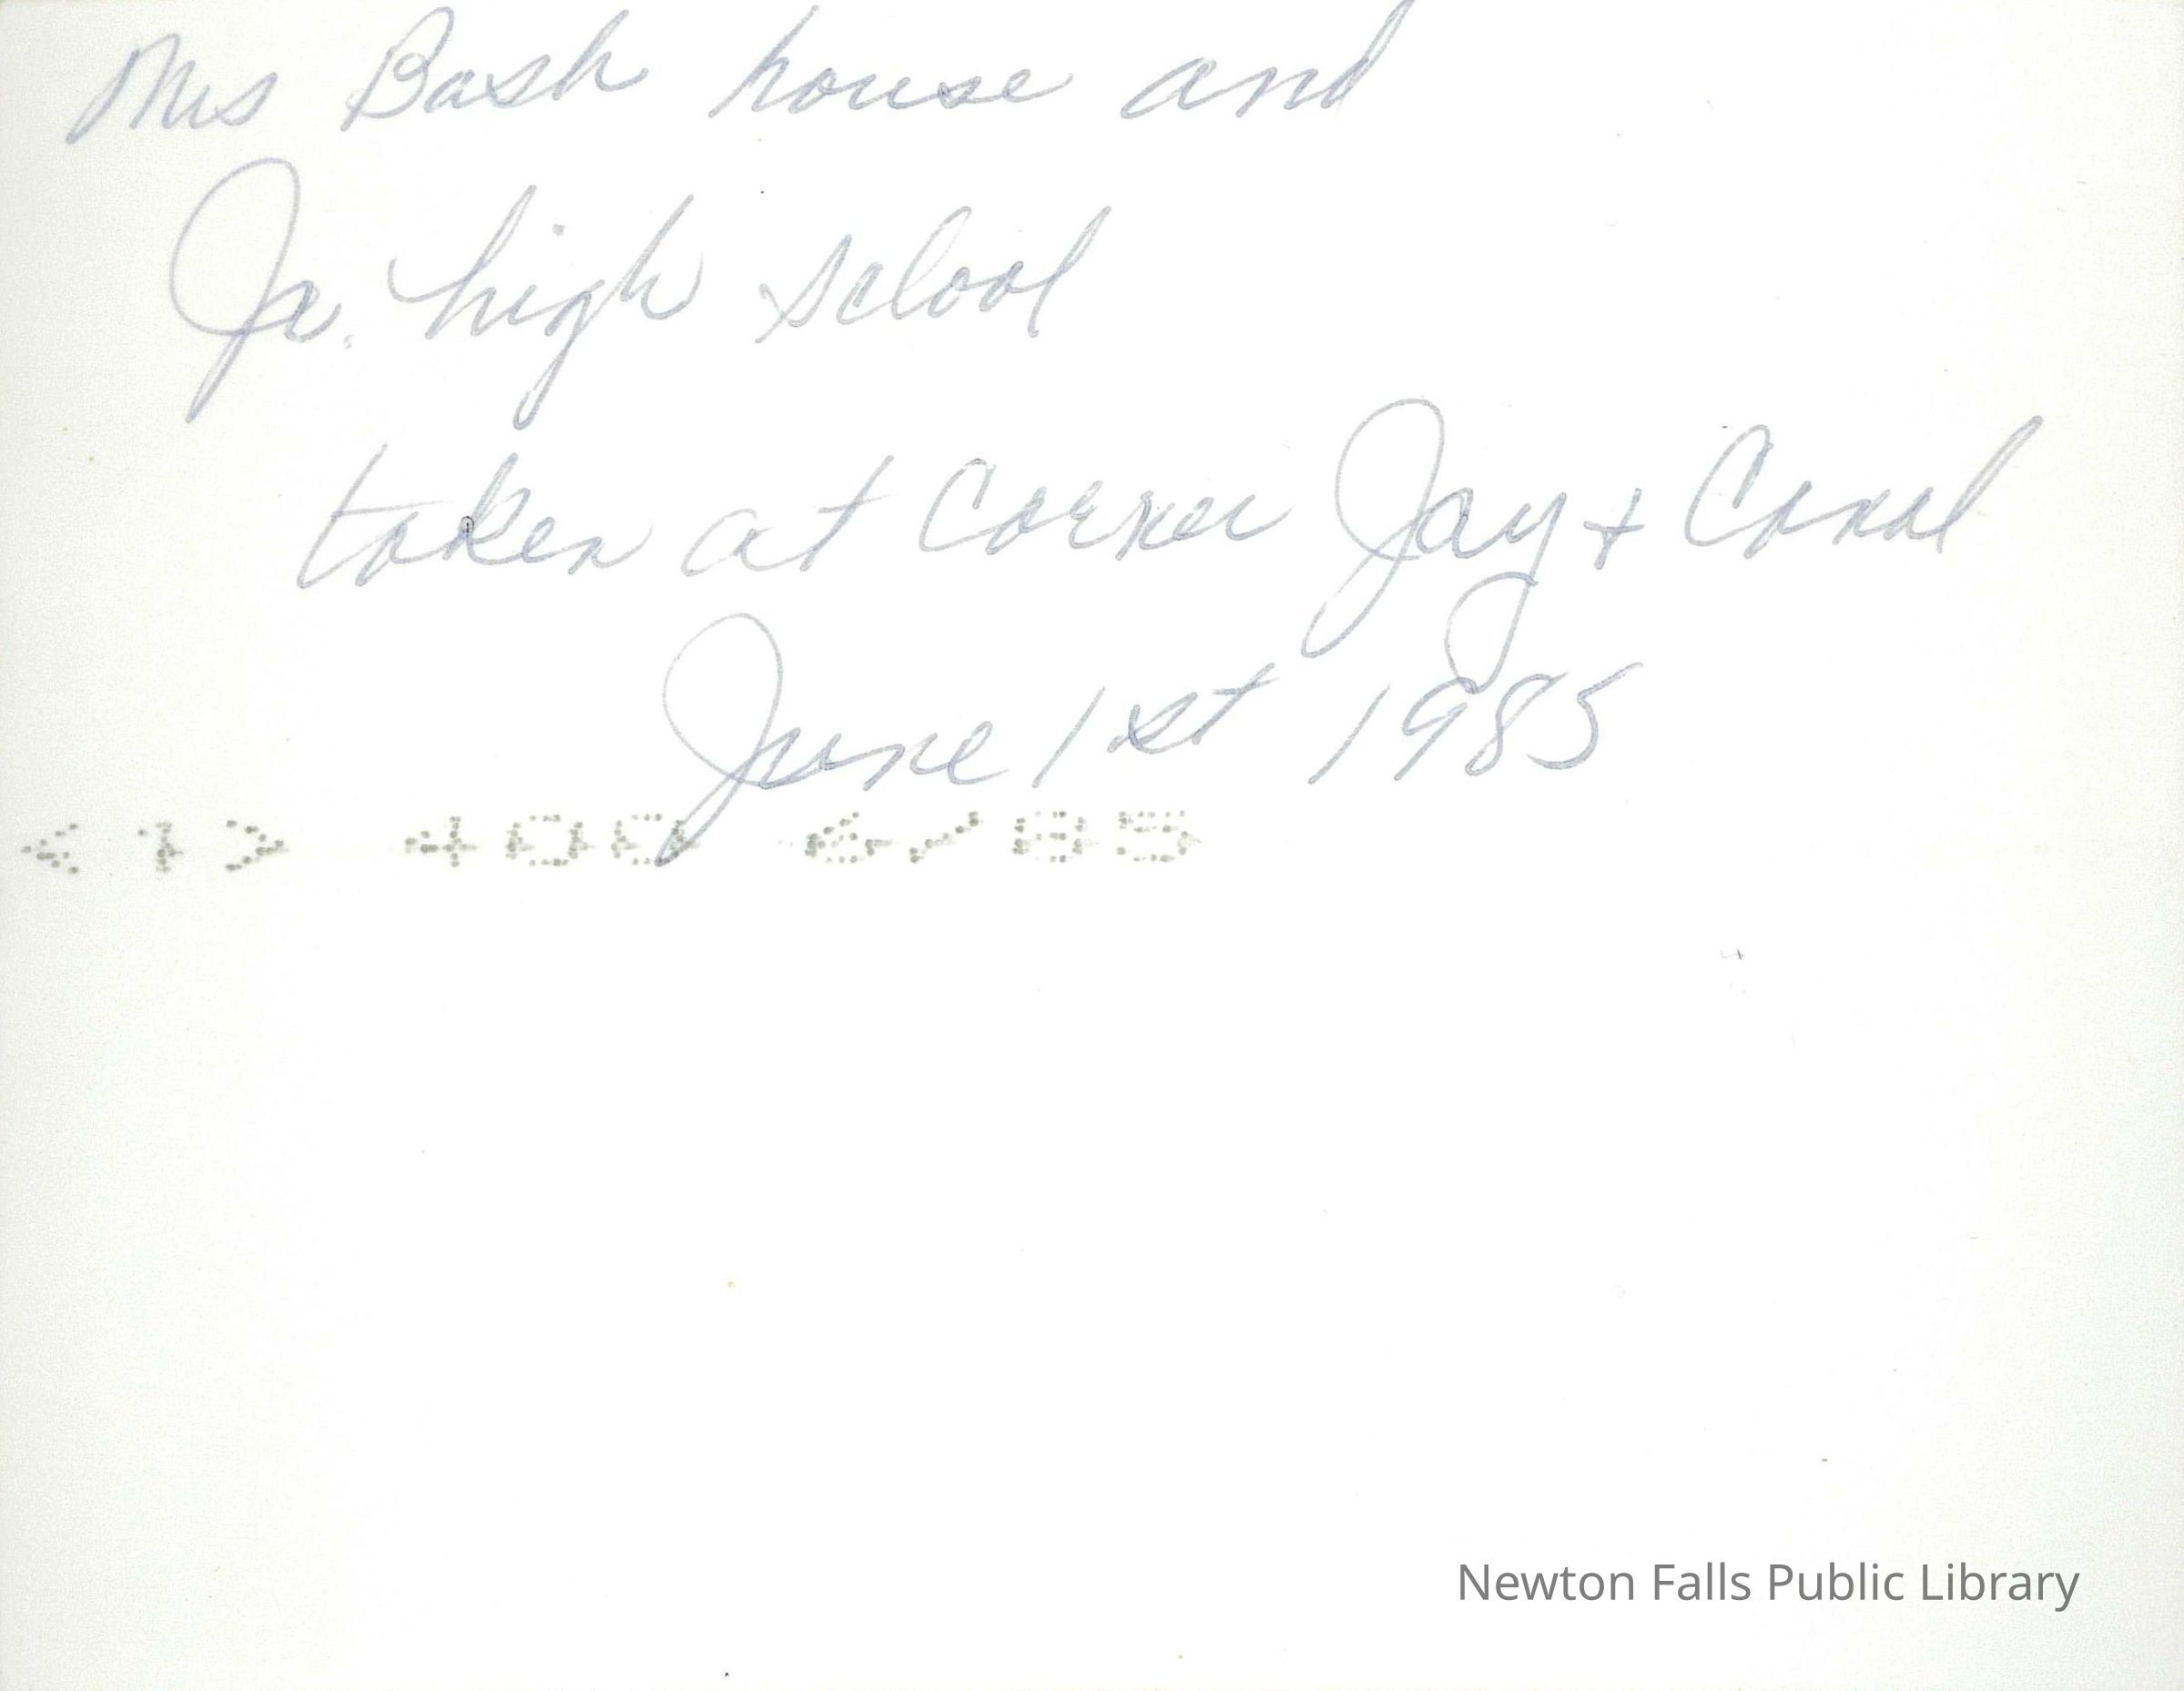 Mrs Bash house and
Jr. high school
taken at Corner Jay + Canal
June 1st 1985
< 1 > 400 6/85
Newton Falls Public Library